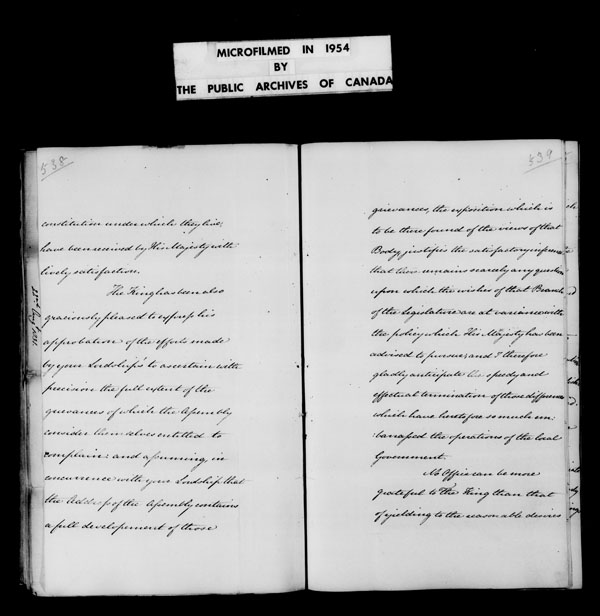 MICROFILMED IN 1954
BY
THE PUBLIC ARCHIVES OF CANADA
538
constitution under which they live,
have been received by His Majesty with
lively satisfaction.
The King has been also
graciously pleased to express his
approbation of the efforts made
by your Lordship to ascertain with
precision the full extent of the
grievances of which the Assembly
consider themselves entitled to
complain: and assuming, in
concurrence with your Lordship that
the Address of the Assembly contains
a full developement of those
539
grievances, the exposition which is
to be there found of the views of that
Body, justifies the satisfactory inference
that there remains scarcely any question
upon which the wishes of that Branch
of the Legislature are at variance with
the policy which His Majesty has been
advised to pursue; and I therefore
gladly anticipate the speedy and
effectual termination of those differences
which have heretofore so much em-
barrassed the operations of the local
Government.
No Office can be more
grateful to the King than that
of yielding to the reasonable desires